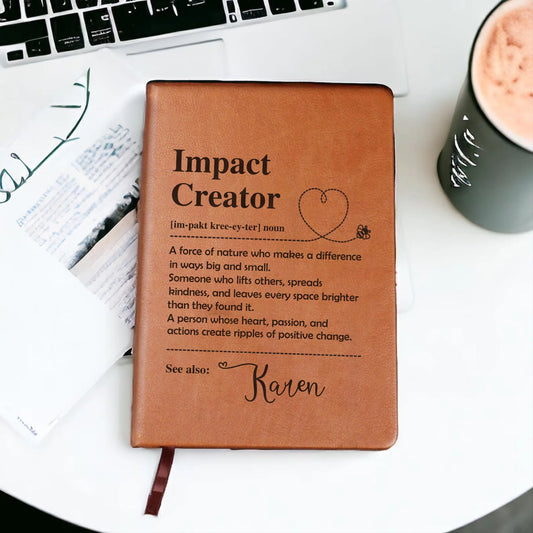 Impact
Creator
[im-pakt kree-ey-ter] noun
A force of nature who makes a difference
in ways big and small.
Someone who lifts others, spreads
kindness, and leaves every space brighter
than they found it.
A person whose heart, passion, and
actions create ripples of positive change.
See also: Karen